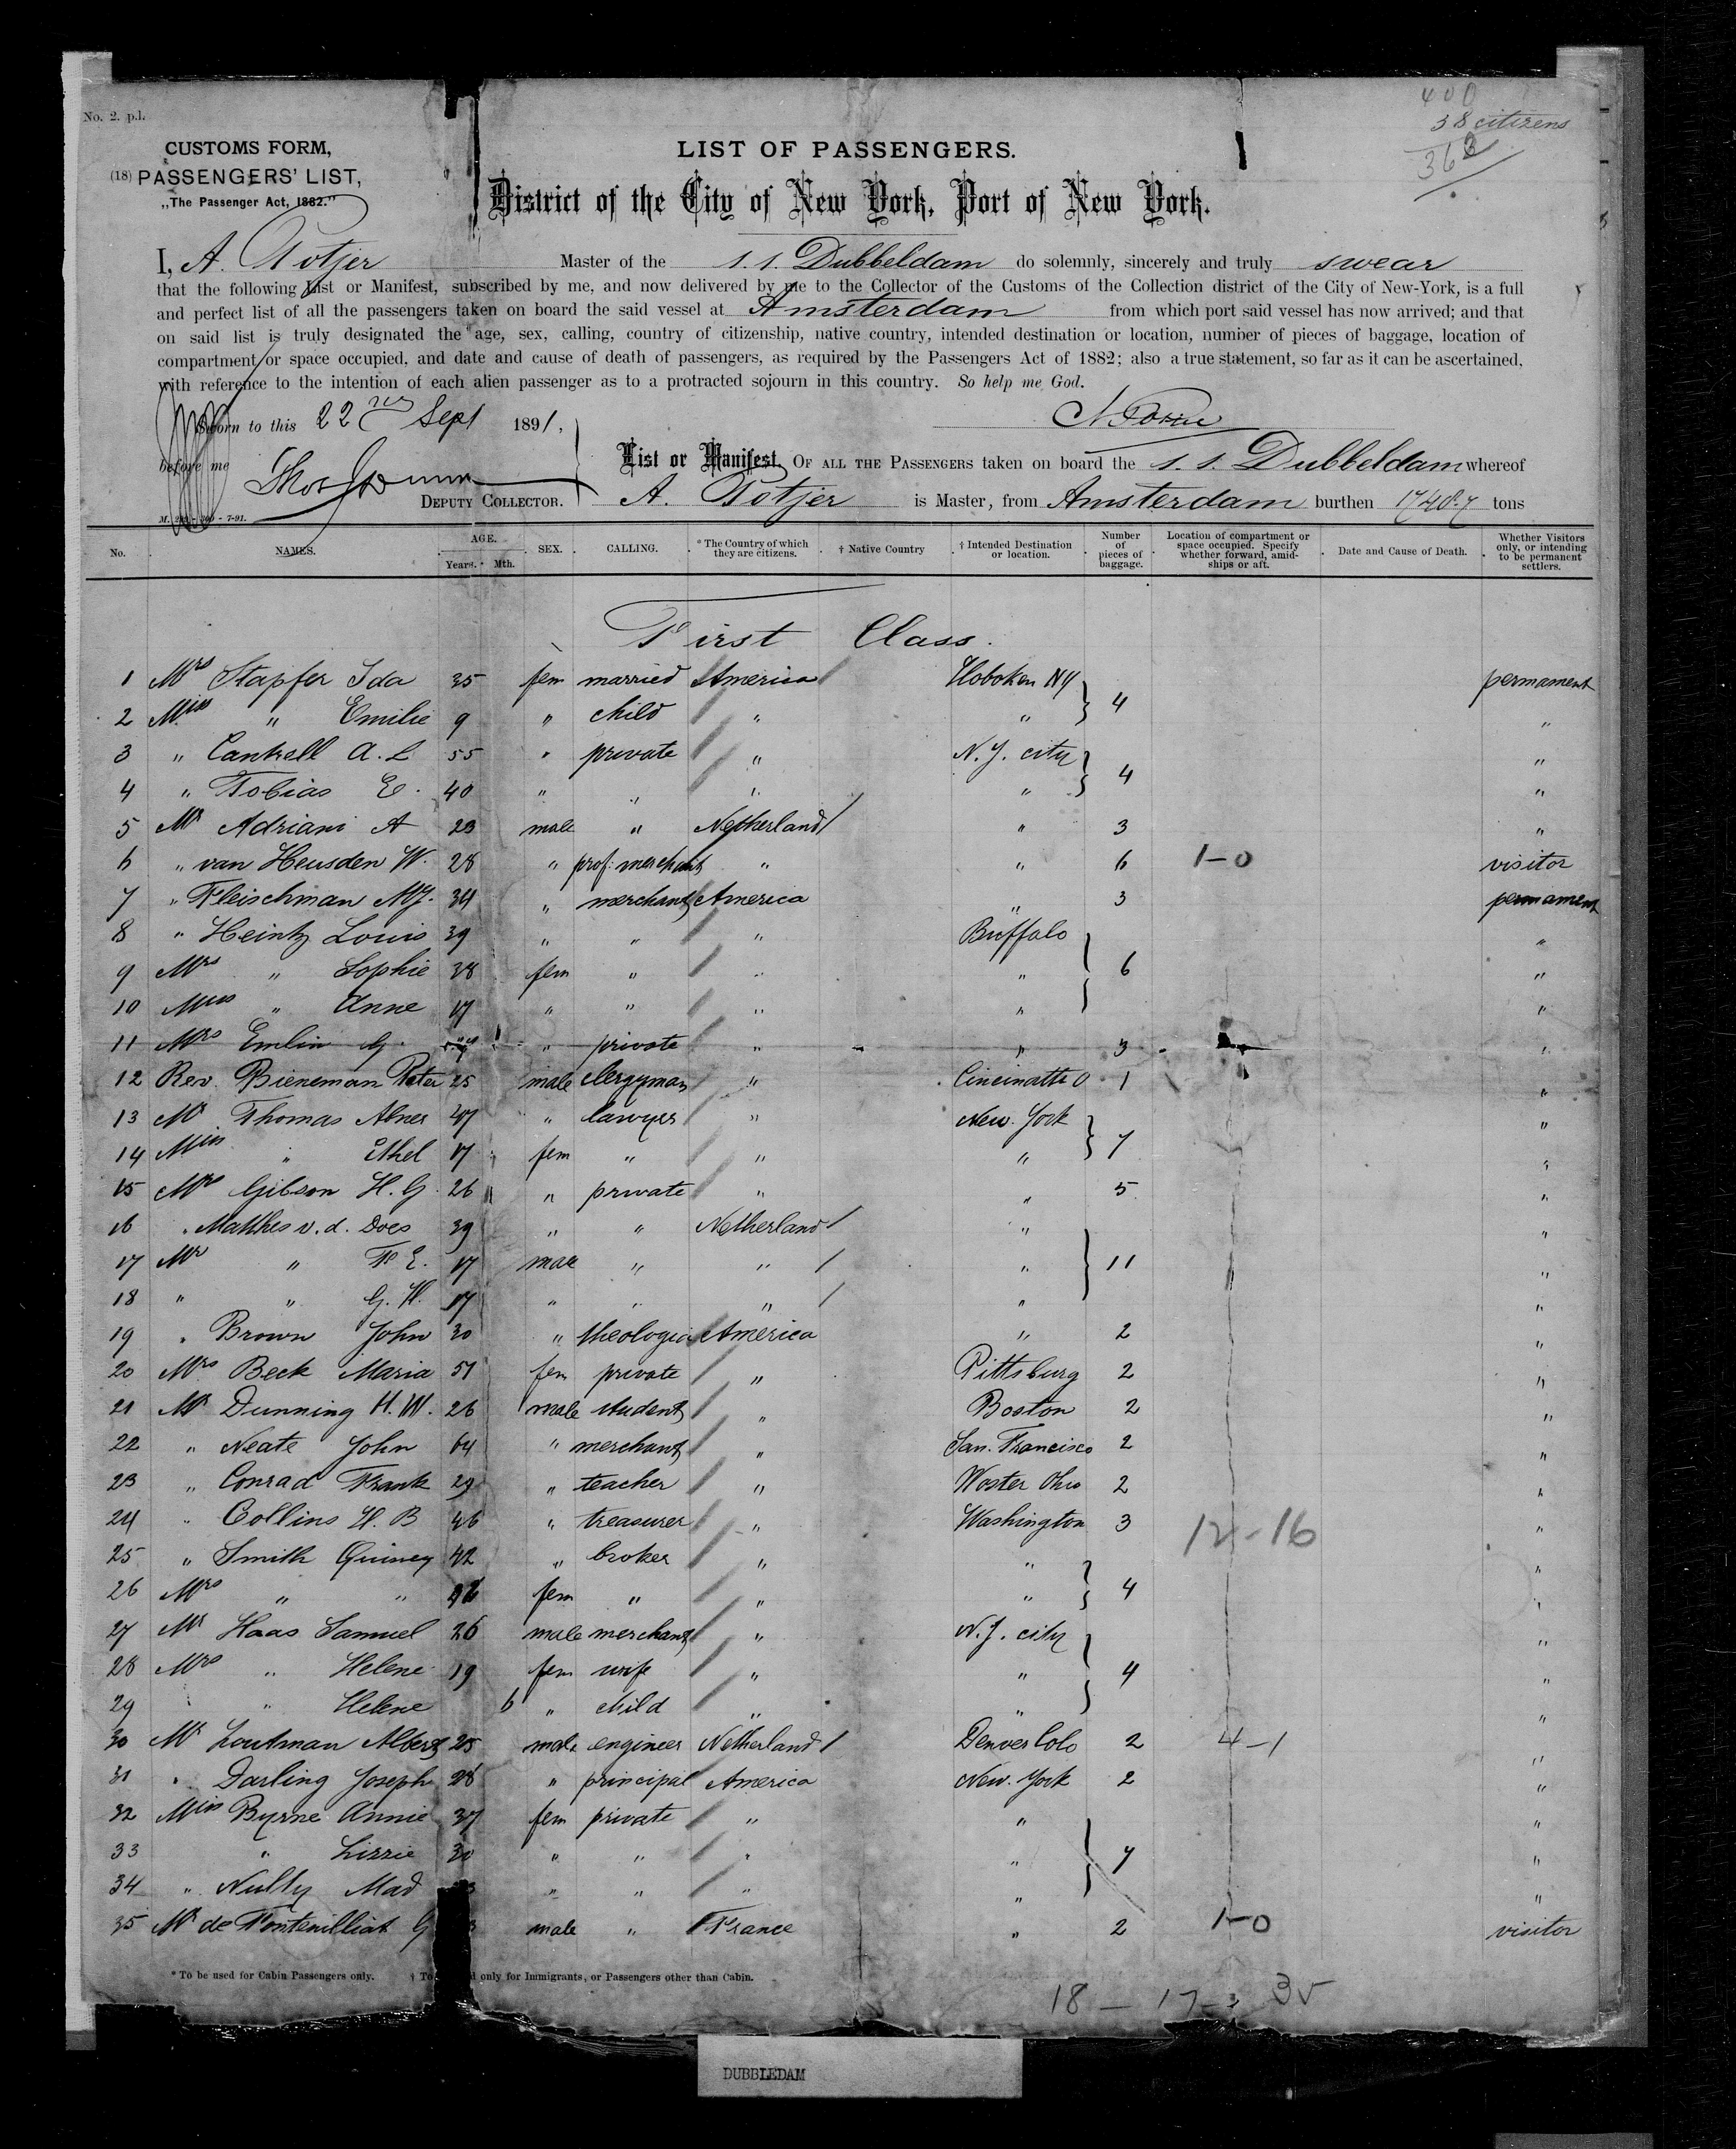 400
38 citizens
362
No. 2. p.l.
CUSTOMS FORM,
(18) PASSENGERS' LIST,
„The Passenger Act, 1882."
LIST OF PASSENGERS.
District of the City of New York, Port of New York.
I, A. Potjer Master of the s.s. Dubbeldam do solemnly, sincerely and truly swear
that the following List or Manifest, subscribed by me, and now delivered by me to the Collector of the Customs of the Collection district of the City of New-York, is a full
and perfect list of all the passengers taken on board the said vessel at Amsterdam from which port said vessel has now arrived; and that
on said list is truly designated the age, sex, calling, country of citizenship, native country, intended destination or location, number of pieces of baggage, location of
compartment or space occupied, and date and cause of death of passengers, as required by the Passengers Act of 1882; also a true statement, so far as it can be ascertained,
with reference to the intention of each alien passenger as to a protracted sojourn in this country. So help me God.
Sworn to this 22 Sept 1891,
before me
DEPUTY COLLECTOR.
List or Manifest, OF ALL THE PASSENGERS taken on board the s.s. Dubbeldam whereof
A. Potjer is Master, from Amsterdam burthen 1740.7 tons
No. NAMES. AGE. Years. Mth. SEX. CALLING. * The Country of which they are citizens. † Native Country † Intended Destination or location. Number of pieces of baggage. Location of compartment or space occupied. Specify whether forward, amidships or aft. Date and Cause of Death. Whether Visitors only, or intending to be permanent settlers.
First Class.
1 Mrs Stapfer Ida 35 fem married America Hoboken NY permament
2 Miss " Emilie 9 " child " " 4 "
3 " Cantrell A. L 55 " private " N.Y. city "
4 " Tobias E. 40 " " " " 4 "
5 Mr Adriani A 23 male " Netherland " 3 "
6 " van Heusden W. 28 " prof: merchant " " 6 1-0 visitor
7 " Fleischman MJ. 34 " merchant America " 3 permament
8 " Heintz Louis 39 " " " Buffalo "
9 Mrs " Sophie 38 fem " " " 6 "
10 Miss " Anne 17 " " " " "
11 Mrs Emlin G. " private " " 3 "
12 Rev. Bieneman Peter 25 male clergyman " Cincinatte O 1 "
13 Mr Thomas Abner 47 " lawyer " New. York "
14 Miss " Ethel 17 fem " " " 7 "
15 Mrs Gibson H. G. 26 " private " " 5 "
16 " Matthes v. d. Does 39 " " Netherland " "
17 Mr " F. E. 17 male " " " 11 "
18 " " G. H. 17 " " " " "
19 " Brown John 30 " theologia America " 2 "
20 Mrs Beck Maria 51 fem private " Pittsburg 2 "
21 Mr Dunning H. W. 26 male student " Boston 2 "
22 " Neate John 64 " merchant " San. Francisco 2 "
23 " Conrad Frank 29 " teacher " Woster Ohio 2 "
24 " Collins H. B 46 " treasurer " Washington 3 12-16 "
25 " Smith Quincy 42 " broker " " "
26 Mrs " " fem " " " 4 "
27 Mr Haas Samuel 26 male merchant " N.Y. city "
28 Mrs " Helene 19 fem wife " " 4 "
29 " " Helene 6 " child " " "
30 Mr Loutman Albert 25 male engineer Netherland Denver Colo 2 4-1 "
31 " Darling Joseph 28 " principal America New. York 2 "
32 Miss Byrne Annie 37 fem private " " "
33 " Lizzie 30 " " " " 7 "
34 " Nully Mad " " " " "
35 Mr de Fontenilliat G male " France " 2 1-0 visitor
* To be used for Cabin Passengers only. † To only for Immigrants, or Passengers other than Cabin.
18 - 17 = 35
DUBBLEDAM